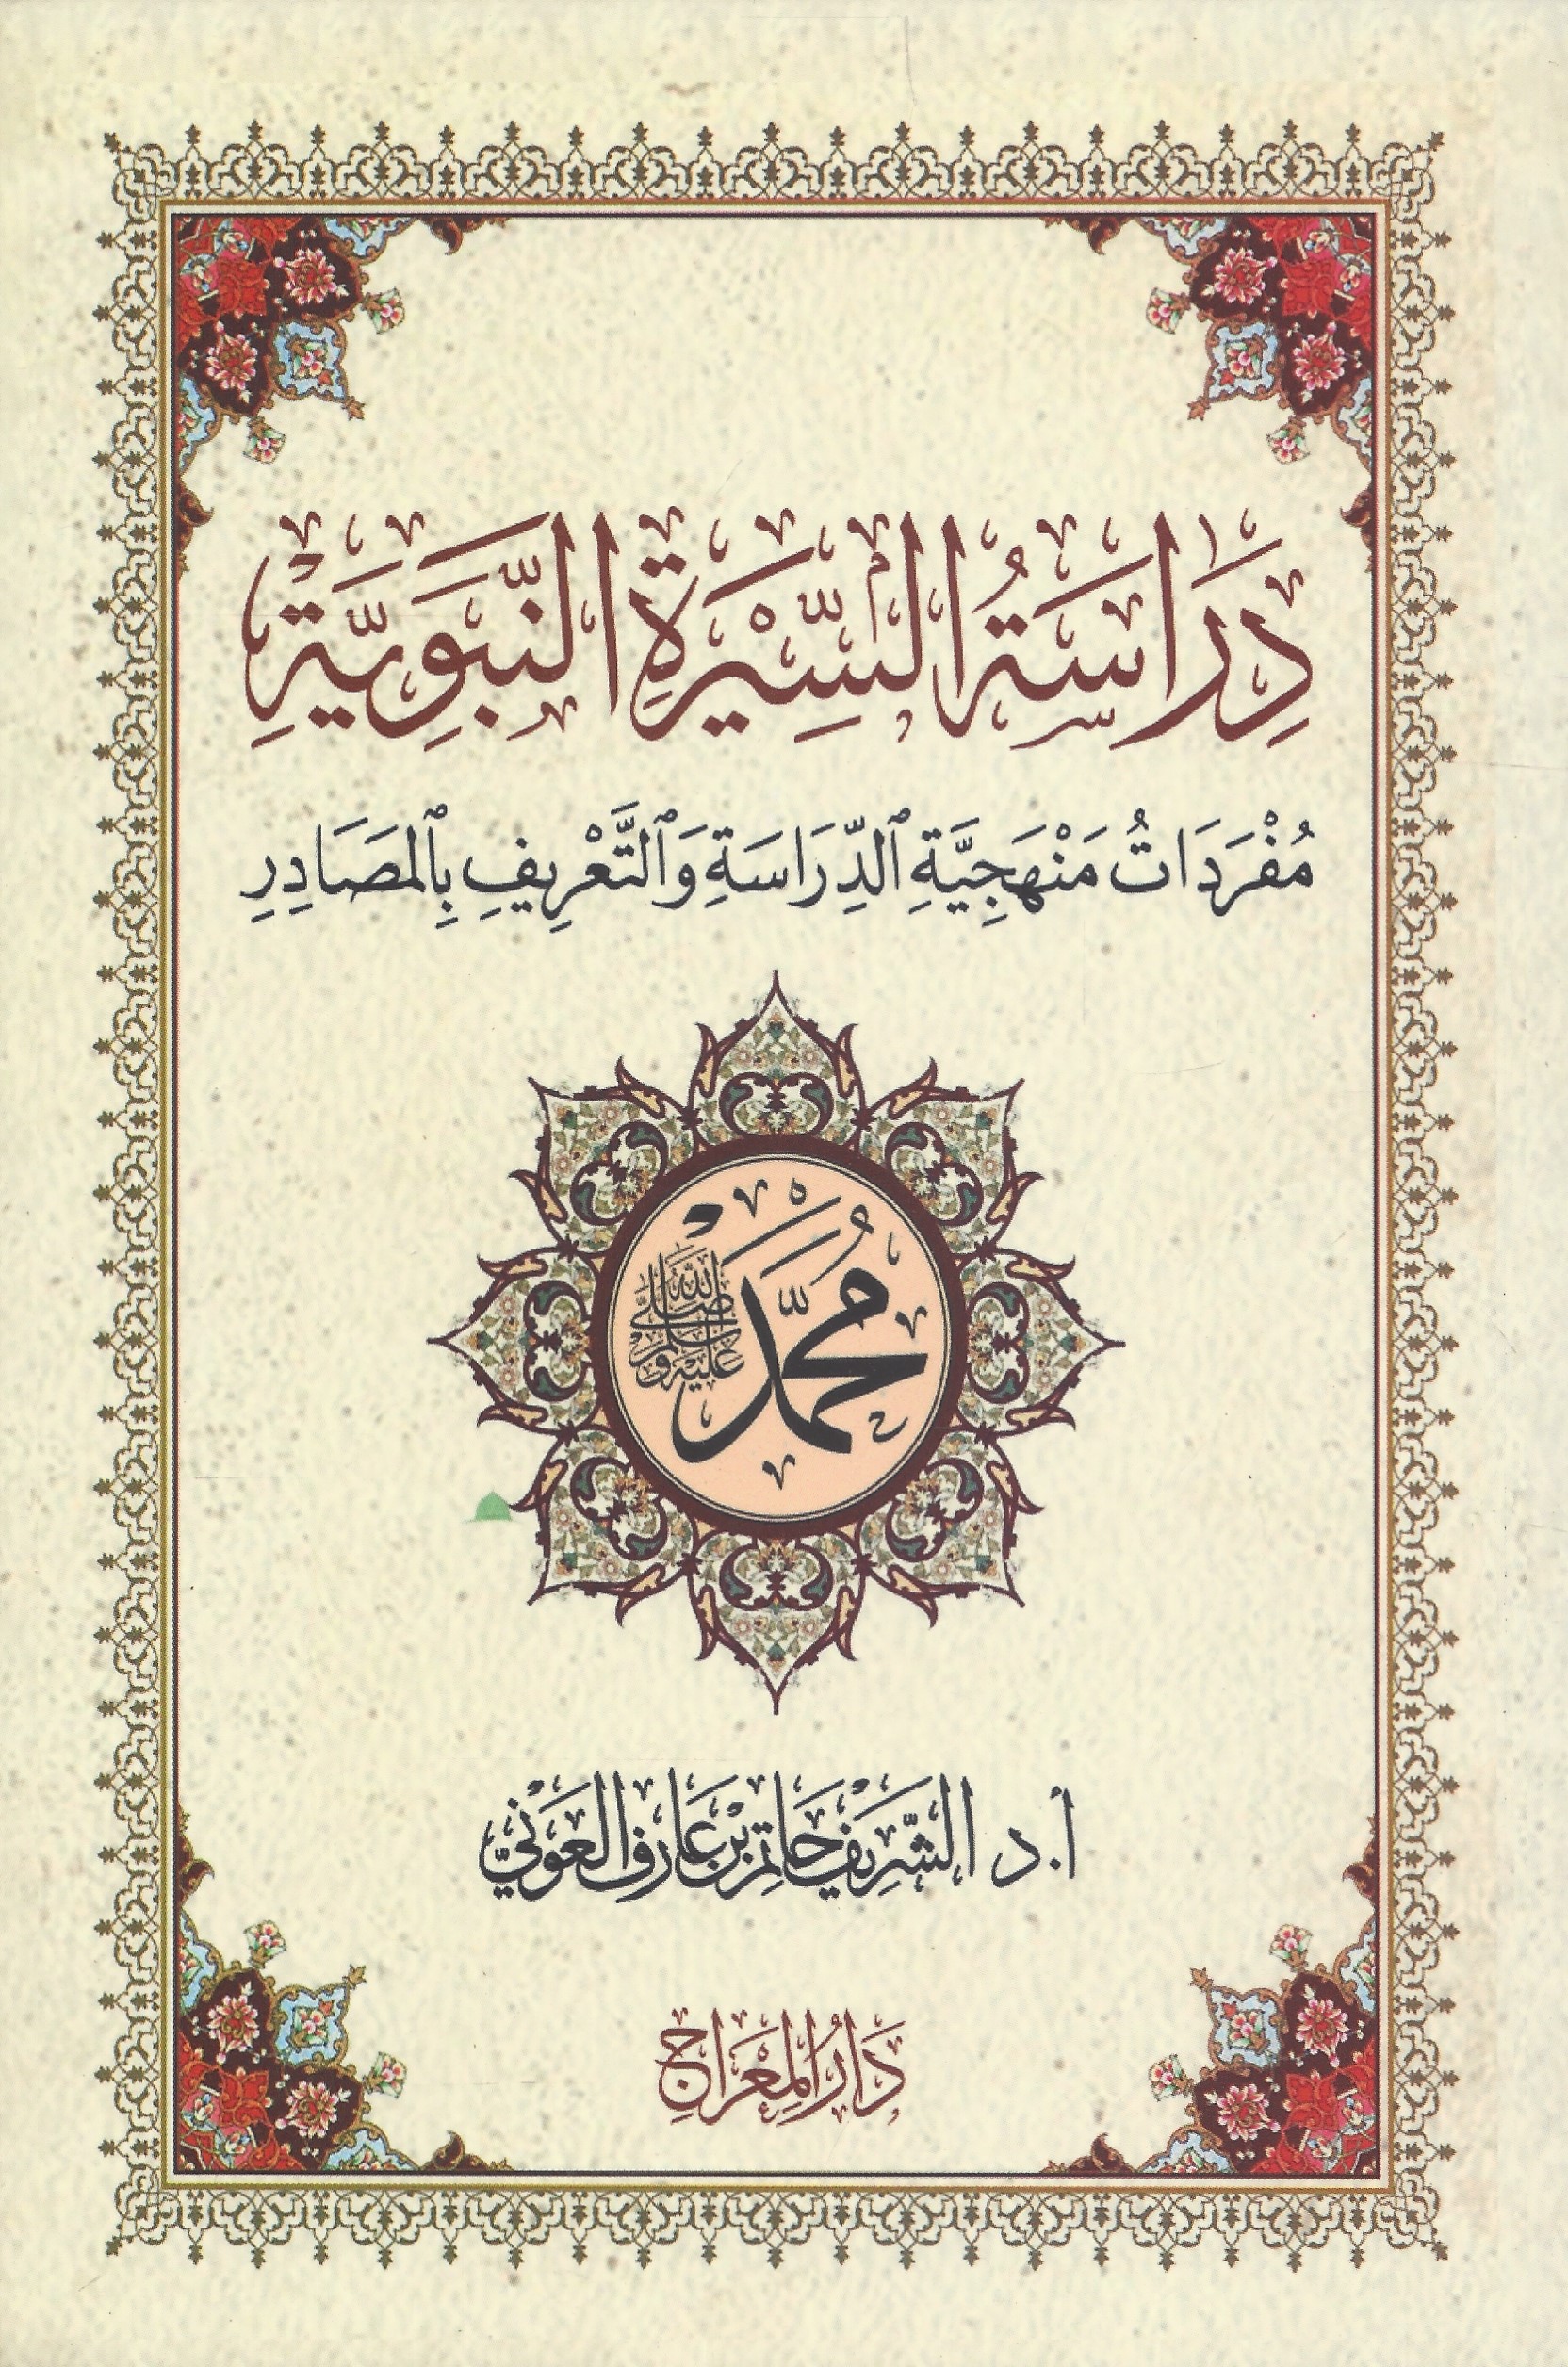 دِرَاسَةُ السِّيْرَةِ النَّبَوِيَّةِ
مُفْرَدَاتُ مَنْهَجِيَّةِ ٱلدِّرَاسَةِ وَٱلتَّعْرِيفِ بِٱلْمَصَادِرِ
مُحَمَّد
صلى الله عليه وسلم
أ.د الشَّرِيْف حَاتِم بْن عَارِف العَوْنِيّ
دَارُ المِعْرَاجِ